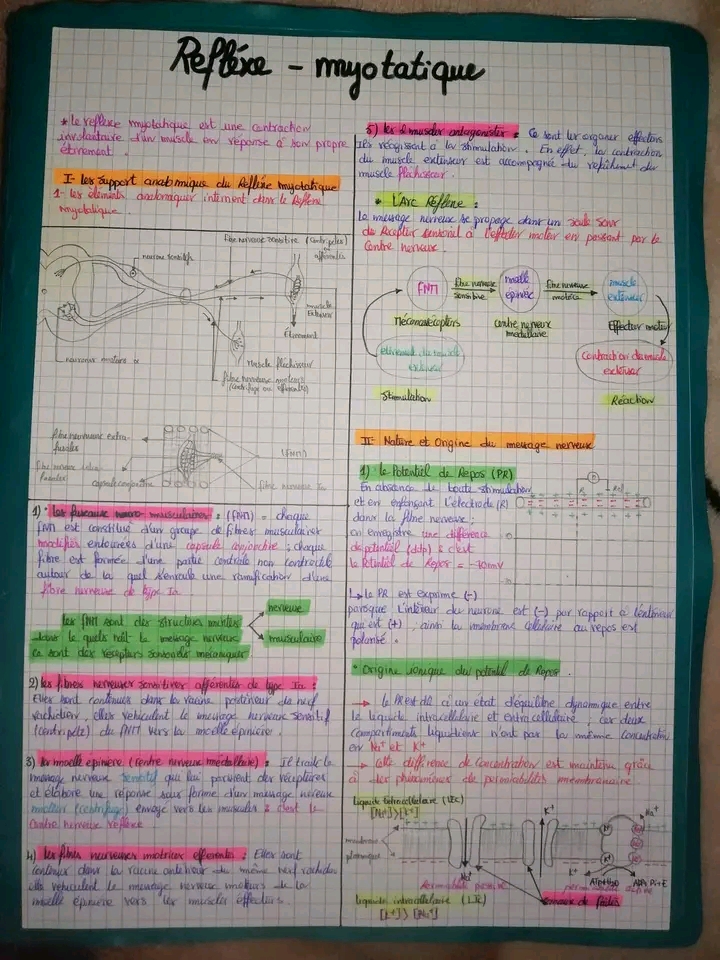 Refléxe - myotatique
* le reflexe myotatique est une contraction
involontaire d'un muscle en réponse à son propre
étirement.
I- les support anatomique du Réflexe myotatique
1- les éléments anatomiques intervient dans le Réflexe
myotatique.
fibre nerveuse sensitive (centripètes)
afférentes
neurone sensitifs
muscle
Extenseur
Étirement
neurones moteurs α
Muscle fléchisseur
fibre nerveuse moteurs
(centrifuge ou efférentes)
fibre nerveuse extra-
fusales
(FNM)
fibre nerveuse intra-
fusales
capsule conjonctive
fibre nerveuse Ia
1) les fuseaux neuro-musculaires : (FNM) = chaque
FNM est constitué d'un groupe de fibres musculaires
modifiés entourées d'une capsule conjonctive ; chaque
fibre est formée d'une partie centrale non contractile
autour de la quel s'enroule une ramification d'une
fibre nerveuse de type Ia.
les FNM sont des structures mixtes
dans le quels naît le message nerveux
ce sont des récepteurs sensoriels mécaniques
nerveuse
musculaire
2) les fibres nerveuses sensitives afférentes de type Ia :
Elles sont contenues dans la racine postérieur du nerf
rachidien, elles véhiculent le message nerveux sensitif
(centripète) du FNM vers la moelle épinière.
3) la moelle épinière (centre nerveux médullaire) : Il traite le
message nerveux sensitif qui lui parvient des récepteurs
et élabore une réponse sous forme d'un message nerveux
moteur (centrifuge) envoyé vers les muscles : c'est le
centre nerveux réflexe.
4) les fibres nerveuses motrices efférentes : Elles sont
contenues dans la racine antérieur du même nerf rachidien
elles véhiculent le message nerveux moteurs de la
moelle épinière vers les muscles effecteurs.
5) les 2 muscles antagonistes : Ce sont les organes effecteurs
Ils réagissent à la stimulation. En effet, la contraction
du muscle extenseur est accompagnée du relâchement du
muscle fléchisseur.
* L'Arc Réflexe :
Le message nerveux se propage dans un seule sens
du Récepteur sensoriel à l'effecteur moteur en passant par le
Centre nerveux.
FNM
fibre nerveuse
sensitive
moelle
épinière
fibre nerveuse
motrice
muscle
extenseur
Mécanorécepteurs
centre nerveux
médullaire
Effecteur moteur
étirement du muscle
extenseur
Contraction du muscle
extenseur
Stimulation
Réaction
II- Nature et Origine du message nerveux
1) le Potentiel de Repos (PR)
En absence de toute stimulation
et en enfonçant l'électrode (R)
dans la fibre nerveuse ;
on enregistre une différence
de potentiel (ddp) : c'est
le Potentiel de Repos = -70mV
↳ le PR est exprimé (-)
parceque l'intérieur du neurone est (-) par rapport à l'extérieur
qui est (+) ; ainsi la membrane cellulaire au repos est
polarisé.
* Origine ionique du potentiel de Repos.
→ le PR est dû à un état d'équilibre dynamique entre
le liquide intracellulaire et extracellulaire ; ces deux
compartiments liquidiens n'ont pas la même concentration
en Na⁺ et K⁺
→ cette différence de concentration est maintenu grâce
à des phénomènes de perméabilités membranaire.
Liquide Extracellulaire (LEC)
[Na⁺]>[K⁺]
K⁺
Na⁺
membrane
plasmique
Na⁺
K⁺
ATP+H₂O
ADP+Pi+E
perméabilité passive
perméabilité active
canaux de fuites
liquide intracellulaire (LIC)
[K⁺]>[Na⁺]